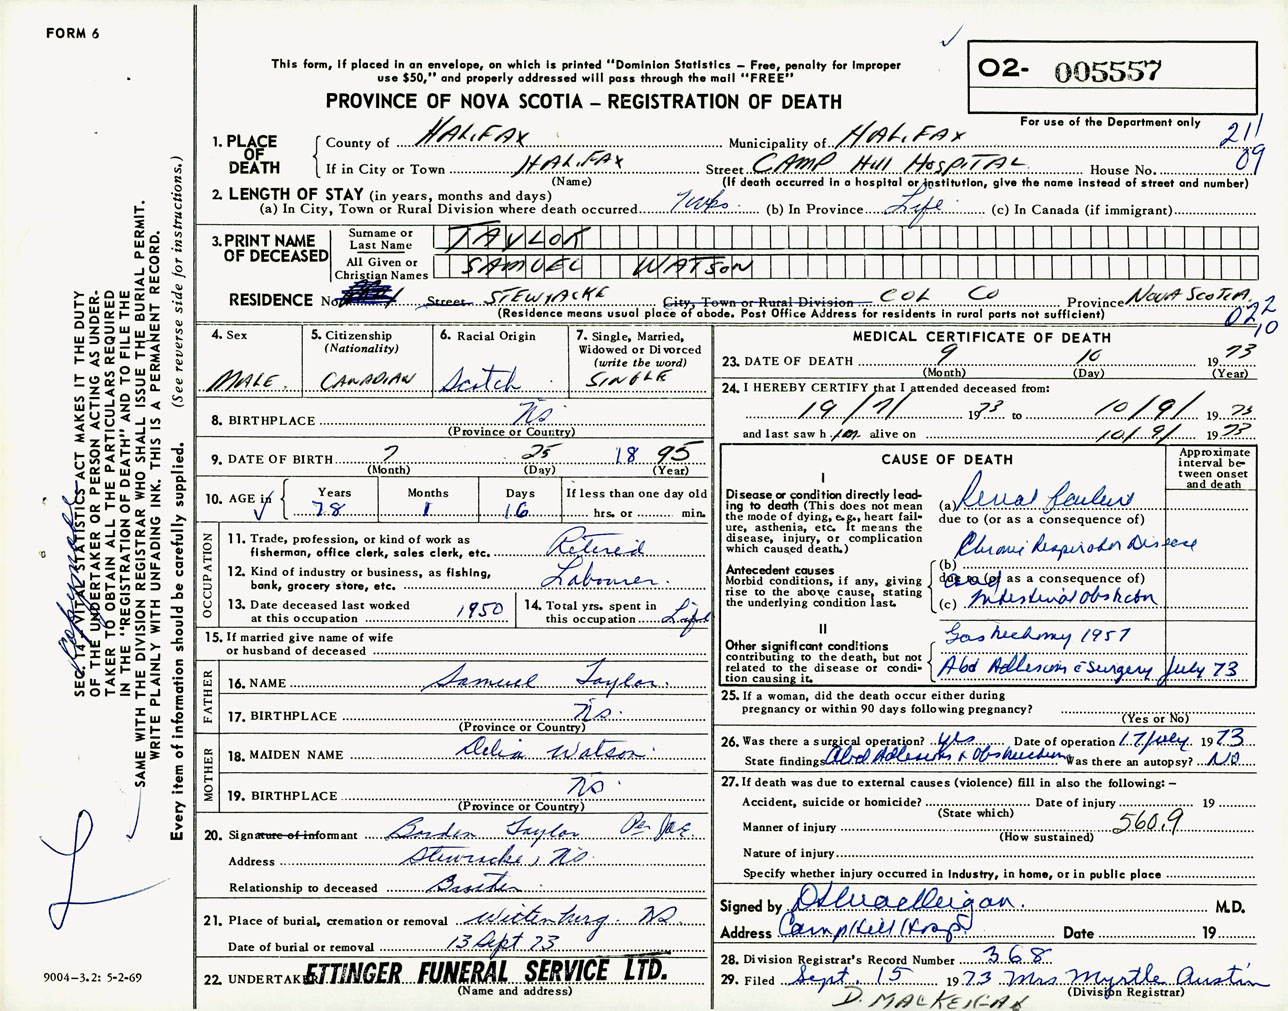 FORM 6
O2- 005557
This form, if placed in an envelope, on which is printed "Dominion Statistics – Free, penalty for improper
use $50," and properly addressed will pass through the mail "FREE"
PROVINCE OF NOVA SCOTIA – REGISTRATION OF DEATH
For use of the Department only
211
09
1. PLACE OF DEATH
County of HALIFAX Municipality of HALIFAX
If in City or Town HALIFAX Street CAMP HILL HOSPITAL House No.
(Name) (If death occurred in a hospital or institution, give the name instead of street and number)
2. LENGTH OF STAY (in years, months and days)
(a) In City, Town or Rural Division where death occurred 7wks (b) In Province Life (c) In Canada (if immigrant)
3. PRINT NAME OF DECEASED
Surname or Last Name TAYLOR
All Given or Christian Names SAMUEL WATSON
RESIDENCE No. Street STEWIACKE City, Town or Rural Division COL CO Province NOVA SCOTIA
(Residence means usual place of abode. Post Office Address for residents in rural parts not sufficient)
022
10
4. Sex MALE
5. Citizenship (Nationality) CANADIAN
6. Racial Origin Scotch
7. Single, Married, Widowed or Divorced (write the word) SINGLE
8. BIRTHPLACE NS
(Province or Country)
9. DATE OF BIRTH 7 25 18 95
(Month) (Day) (Year)
10. AGE in Years 78 Months 1 Days 16 If less than one day old
hrs. or min.
OCCUPATION
11. Trade, profession, or kind of work as fisherman, office clerk, sales clerk, etc. Retired
12. Kind of industry or business, as fishing, bank, grocery store, etc. Labourer.
13. Date deceased last worked at this occupation 1950
14. Total yrs. spent in this occupation Life
15. If married give name of wife or husband of deceased
FATHER
16. NAME Samuel Taylor.
17. BIRTHPLACE NS.
(Province or Country)
MOTHER
18. MAIDEN NAME Delia Watson
19. BIRTHPLACE NS.
(Province or Country)
20. Signature of informant Borden Taylor Per
Address Stewiacke, NS.
Relationship to deceased Brother
21. Place of burial, cremation or removal Wittenburg. NS
Date of burial or removal 13 Sept 73
22. UNDERTAKER ETTINGER FUNERAL SERVICE LTD.
(Name and address)
MEDICAL CERTIFICATE OF DEATH
23. DATE OF DEATH 9 10 19 73
(Month) (Day) (Year)
24. I HEREBY CERTIFY that I attended deceased from:
19/7/ 19 73 to 10/9/ 19 73
and last saw h im alive on 10/9/ 19 73
CAUSE OF DEATH
Approximate interval between onset and death
I
Disease or condition directly leading to death (This does not mean the mode of dying, e.g., heart failure, asthenia, etc. It means the disease, injury, or complication which caused death.)
(a) Renal failure
due to (or as a consequence of)
Chronic Respirator Disease
Antecedent causes
Morbid conditions, if any, giving rise to the above cause, stating the underlying condition last.
(b)
due to (or as a consequence of)
(c) Intestinal Obstrction
II
Other significant conditions
contributing to the death, but not related to the disease or condition causing it.
Gastrectomy 1957
Abd Adhesions & Surgery July 73
25. If a woman, did the death occur either during pregnancy or within 90 days following pregnancy?
(Yes or No)
26. Was there a surgical operation? yes Date of operation 17 July 19 73
State findings Abd Adhesions & Obstruction Was there an autopsy? NO
27. If death was due to external causes (violence) fill in also the following: –
Accident, suicide or homicide? Date of injury 19
(State which)
Manner of injury 560.9
(How sustained)
Nature of injury
Specify whether injury occurred in industry, in home, or in public place
Signed by M.D.
Address Camp Hill Hosp Date 19
28. Division Registrar's Record Number 368
29. Filed Sept. 15 19 73 Mrs Myrtle Austin
(Division Registrar)
D. MACKEIGAN
SEC. 14 – VITAL STATISTICS ACT MAKES IT THE DUTY
OF THE UNDERTAKER OR PERSON ACTING AS UNDER-
TAKER TO OBTAIN ALL THE PARTICULARS REQUIRED
IN THE "REGISTRATION OF DEATH" AND TO FILE THE
SAME WITH THE DIVISION REGISTRAR WHO SHALL ISSUE THE BURIAL PERMIT.
WRITE PLAINLY WITH UNFADING INK. THIS IS A PERMANENT RECORD.
Every item of information should be carefully supplied. (See reverse side for instructions.)
9004–3.2: 5-2-69